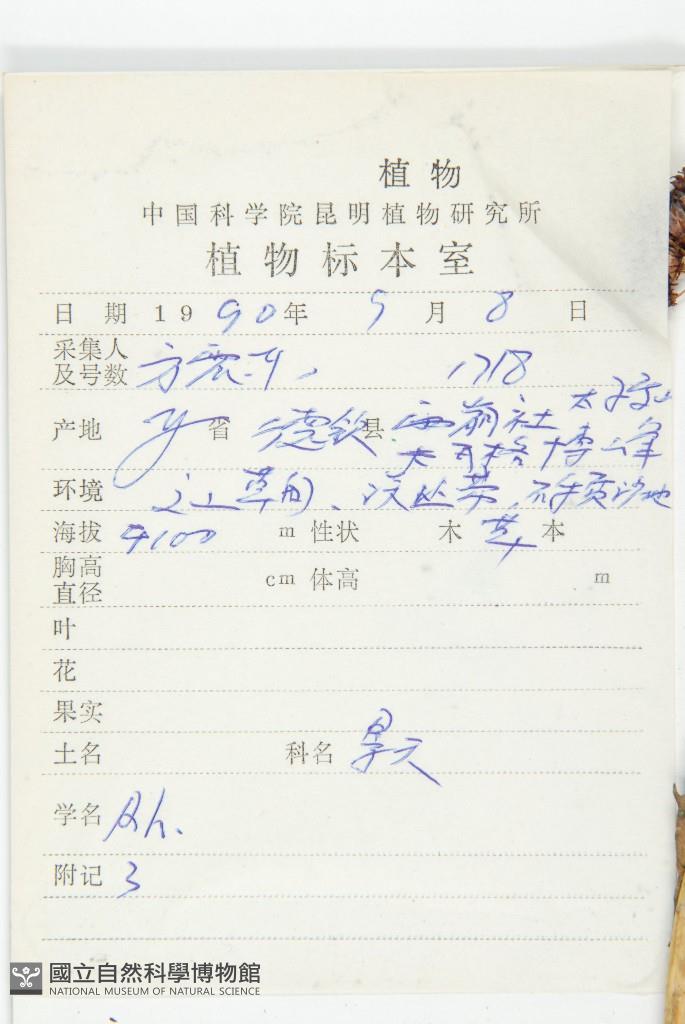 植物
中国科学院昆明植物研究所
植物标本室
日 期 1990年 5月 8日
采集人
及号数 方震东, 1718
产地 y 省 德钦 县
环境 草甸、
海拔 4100 m 性状 木 草 本
胸高
直径 cm 体高 m
叶
花
果实
土名 科名 景天
学名 Rh.
附记 3
國立自然科學博物館
NATIONAL MUSEUM OF NATURAL SCIENCE